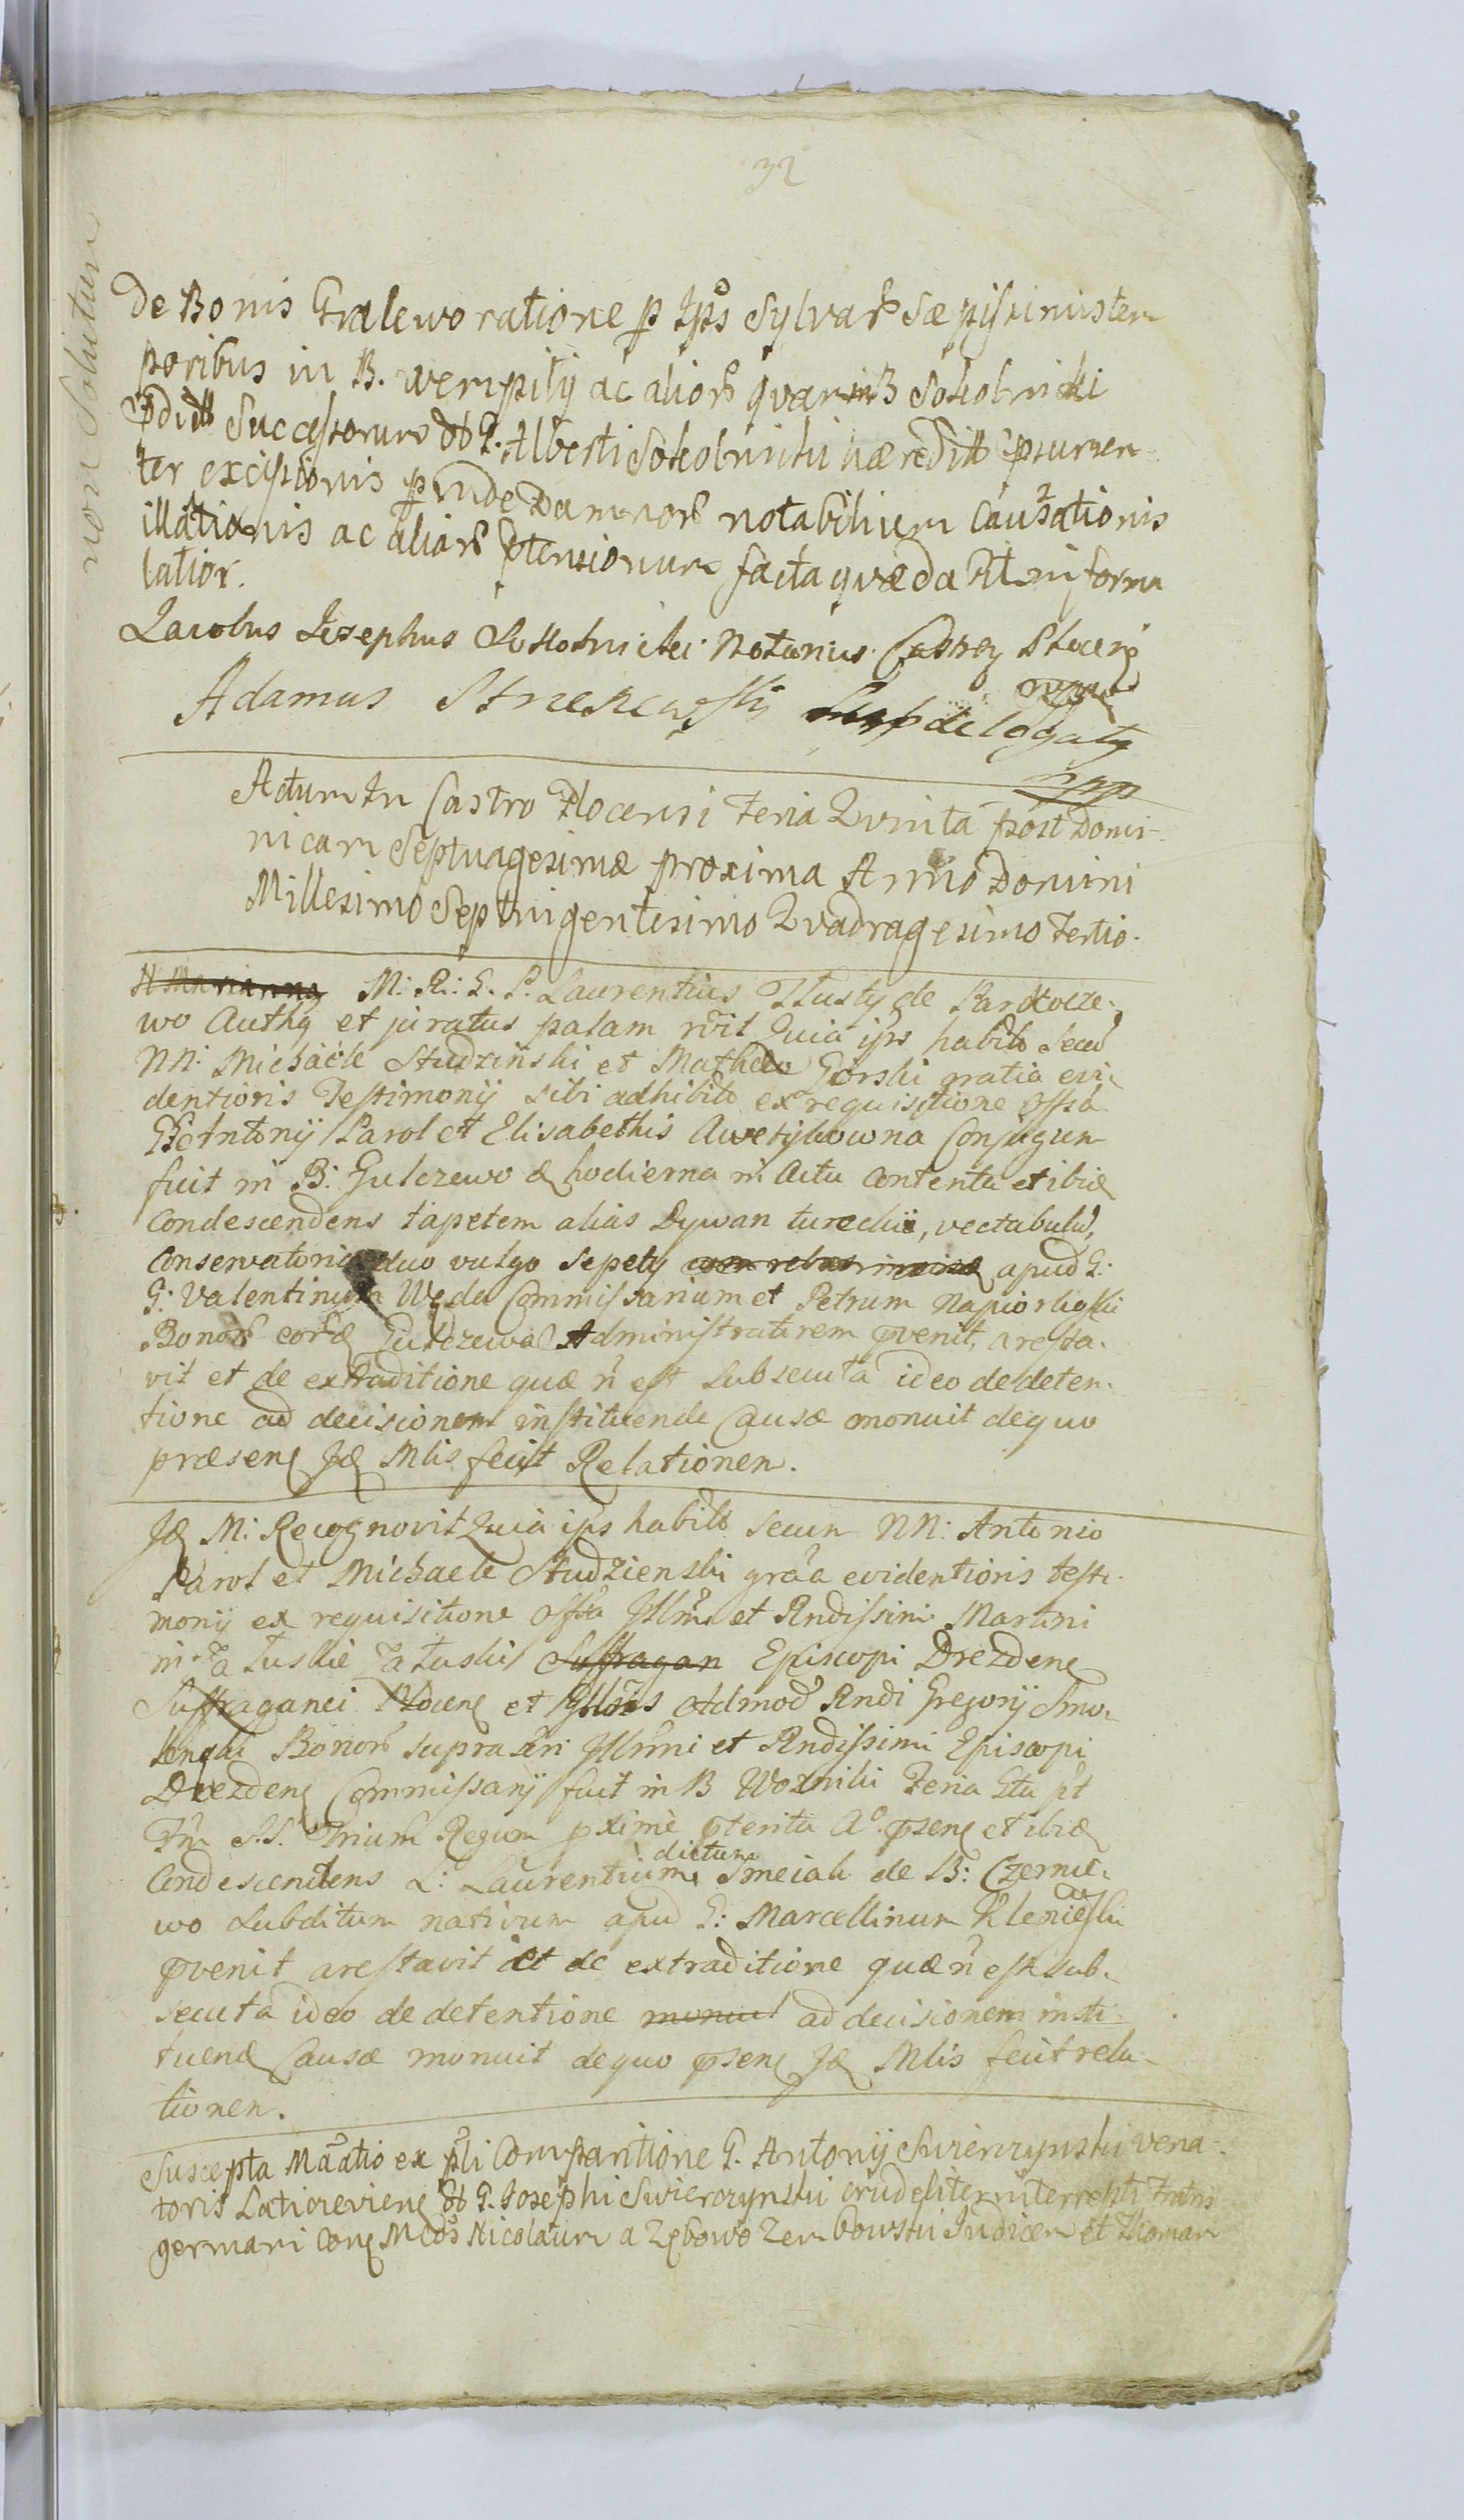 32
non Solutum
de Bonis Gralewo ratione p Ips Sylvar Sæpissimis tem
poribus in B. Wempiły ac alior qvar in B Sokolnicki
Successorum Alberti Sokolnicki hæredit
ter excisionis p inde Damnor notabilium Causationis
illationis ac aliar ptensionum facta qvæ dat in forma
latior.
Iacobus Iosephus Notarius Castren Plocen
Adamus delegatg
mpp
Actum In Castro Plocensi Feria Qvinta post Domi-
nicam Septuagesimæ proxima Anno Domini
Millesimo Septuigentesimo Qvadragesimo Tertio.
M: R: L. P. Laurentius Tłusty de
wo Authg et juratus palam Quia ips habito Secu
NN: Michaele Studzinski et Matheo Gorski gratia evi
dentioris Testimonij sibi adhibito ex requisitione Offsa
Antonij Parol et Elisabethis Conjugum
fuit in B: Gulczewo hodierna in Actu Contenta et ibiq
Condescendens tapetem alias Dywan turecki, vectabulu,
Conservatoria duo vulgo Sepety apud G:
G: Valentinum Węda Commissarium et Petrum
Bonor eorq Gulczewa Administratorem pvenit, aresta-
vit et de extraditione quæ n est Subsecuta ideo de deten-
tione ad decisionem instituende Causæ monuit de quo
præsens Id Mlis fecit Relationem.
Id M: Recognovit Quia ips habito secum NN: Antonio
Parol et Michaele Studzienski graa evidentioris testi-
monij ex requisitione Offsa Illmi et Rndissimi Martini
in Załuskie Załuski Suffragan Episcopi Drezdens
Suffraganei Plocens et Admod Rndi Gregorij Smo-
lenski Bonor supra Illmi et Rndissimi Episcopi
Drezdens Commissarij fuit in B Woznıki Feria pt
Fm S.S. Trium Regum pxime pterita Ao psens et ibiq
Condescendens L: Laurentium dictum Smeiak de B: Czernie-
wo Subditum nativum apud G: Marcellinum
pvenit arestavit et de extraditione quæ n est sub-
secuta ideo de detentione monuit ad decisionem insti-
tuend Causæ monuit de quo psens Id Mlis fecit rela-
tionem.
Suscepta ex Comparitione G. Antonij Swierczynski Vena-
toris G. Iosephi Swierczynski crudeliter Fratris
germani Nicolaum a Zębowo Zembowski Iudicem et Thomam